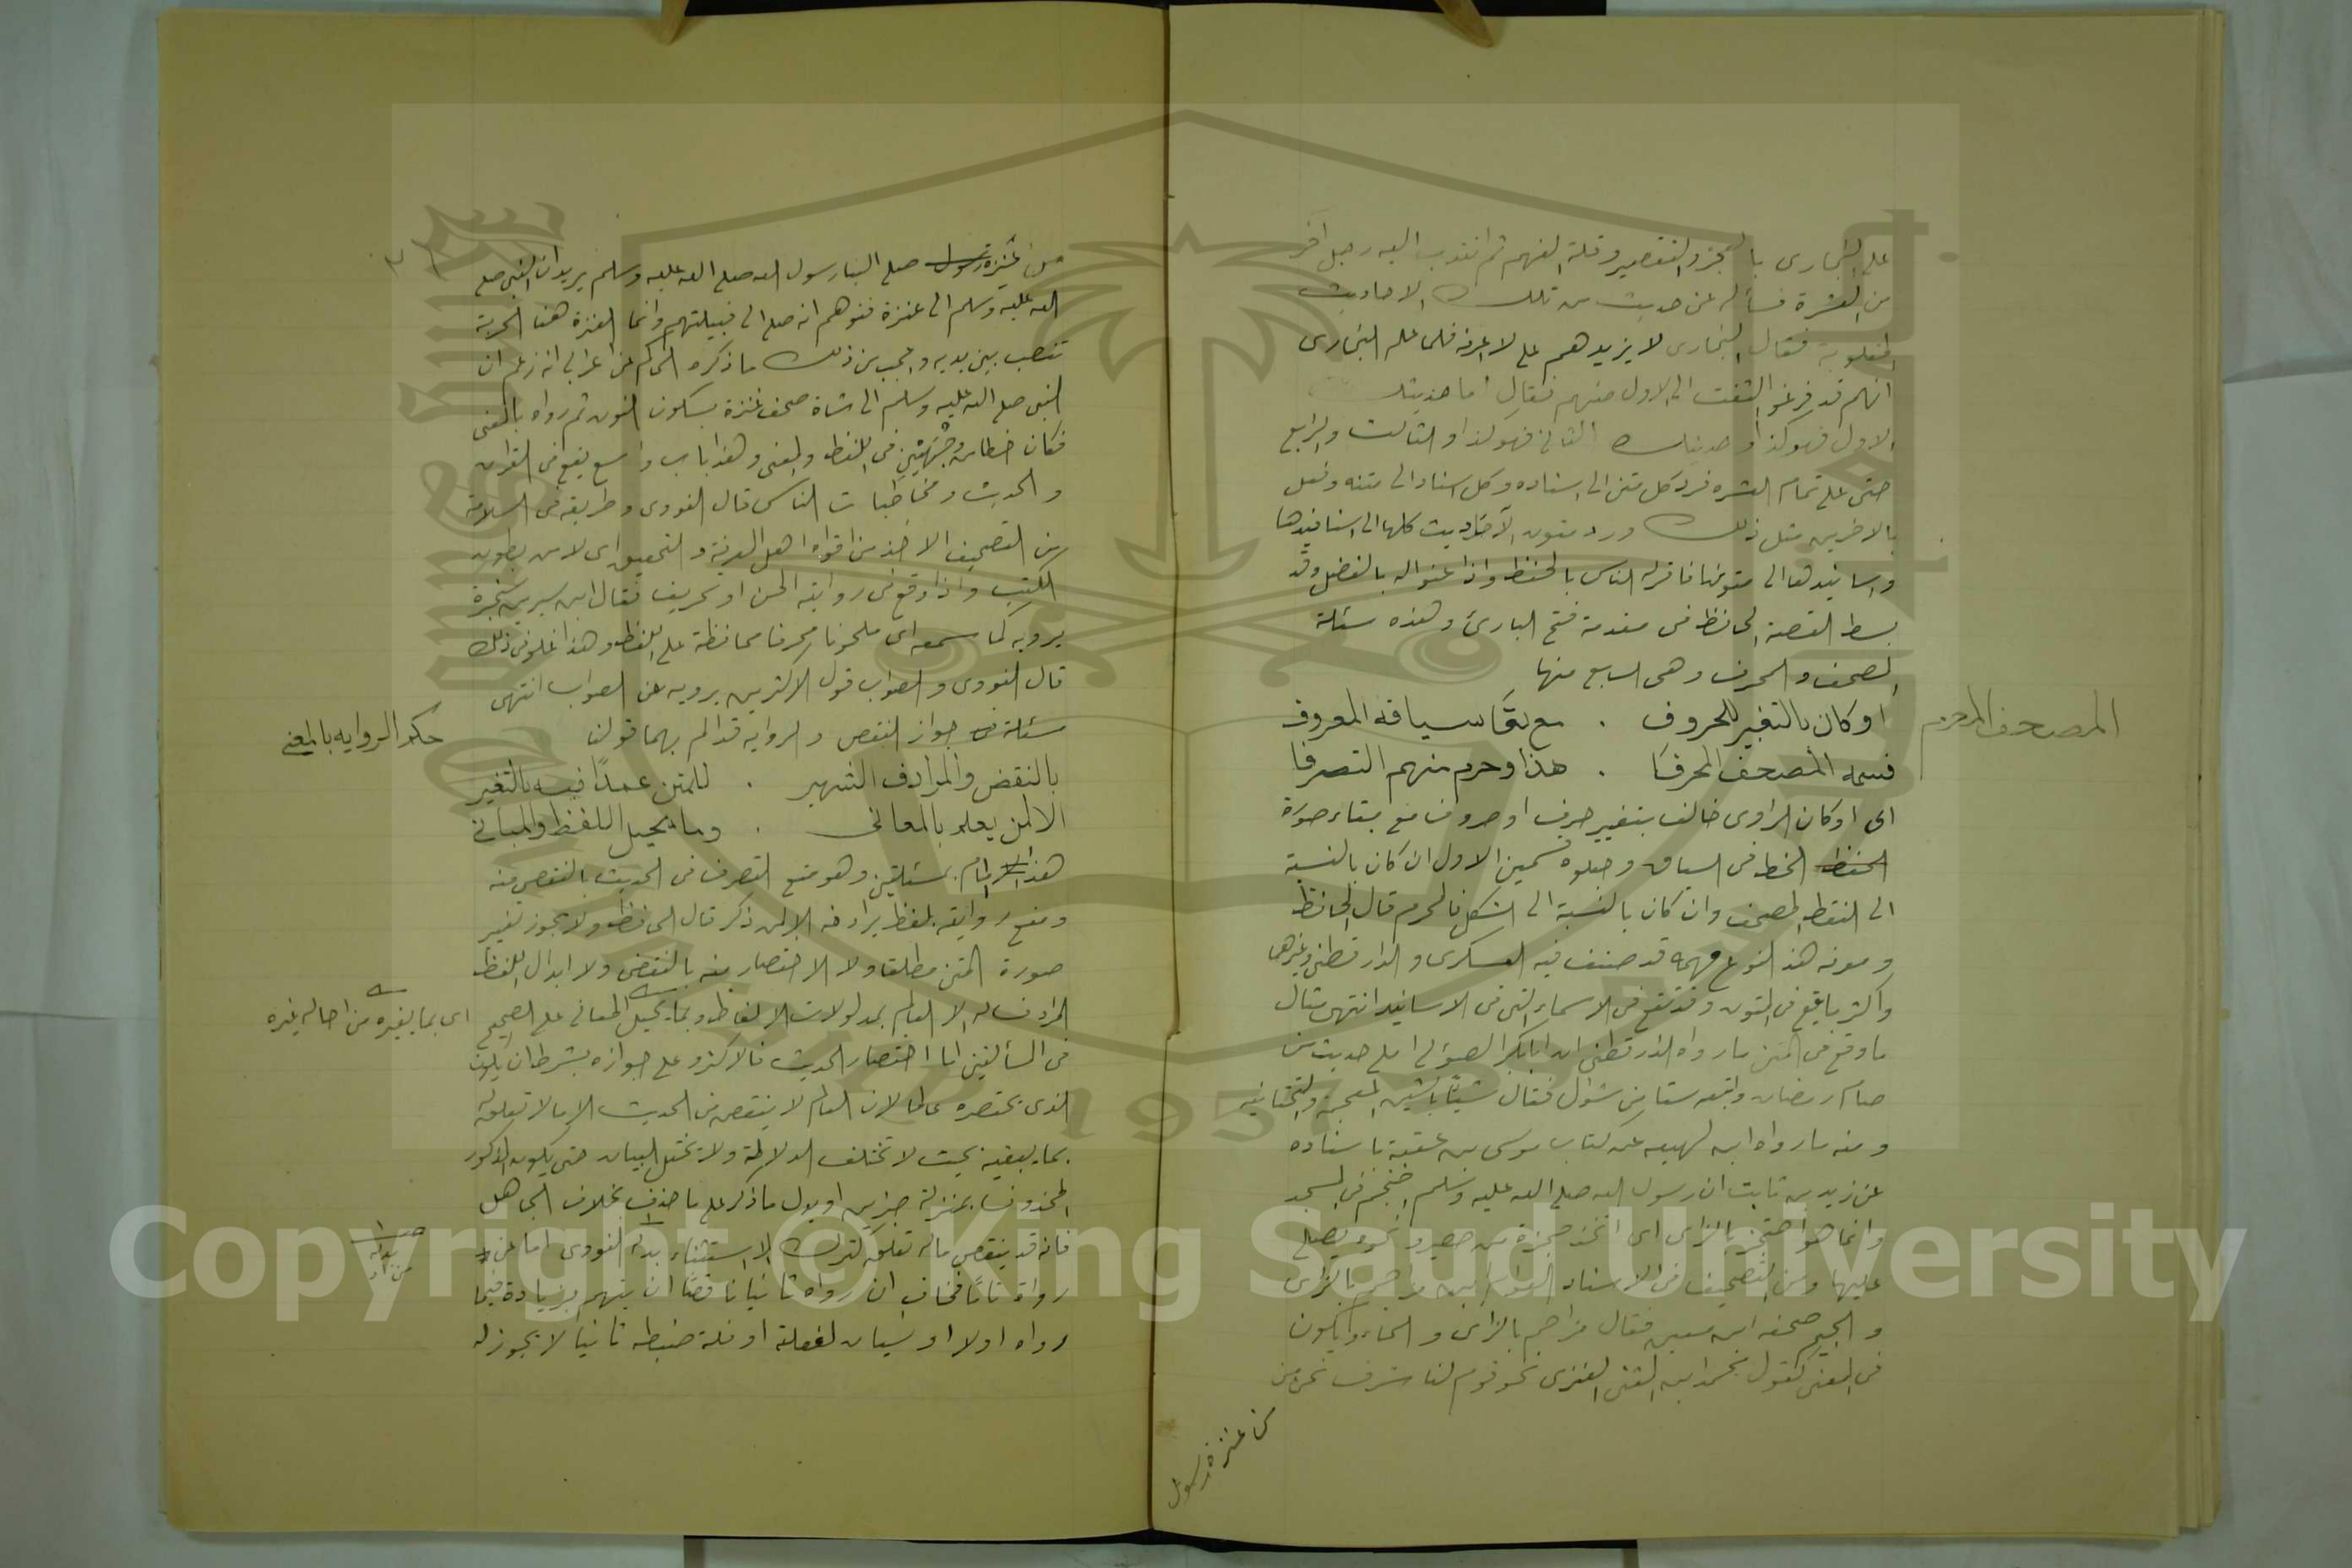 على البخارى بالعجز والتقصير وقلة الفهم ثم انتدب اليه رجل آخر
من العشرة فسأله عن حديث من تلك الاحاديث
المقلوبة فقال البخارى لا يزيدهم على لا اعرفه فلما علم البخارى
انهم قد فرغوا التفت الى الاول منهم فقال اما حديثك
الاول فهو كذا وحديثك الثانى فهو كذا والثالث والرابع
حتى على تمام العشره فرد كل متن الى اسناده وكل اسناد الى متنه وفعل
بالاخرين مثل ذلك ورد متون الاحاديث كلها الى اسانيدها
واسانيدها الى متونها فاقر له الناس بالحفظ واذعنوا له بالفضل وقد
بسط القصة الحافظ فى مقدمة فتح البارئ وهذه مسئلة
المصحف والمحرف وهى السابع منها
المصحف المحرف
او كان بالتغيير للحروف . مع بقا سياقه المعروف
فسمه المصحف المحرفا . هذا وحرم منهم التصرفا
اى او كان الراوى خالف بتغيير حرف او حروف مع بقاء صورة
الحفظ الخط فى السياق وجعلوه قسمين الاول ان كان بالنسبة
الى النقط المصحف وان كان بالنسبة الى الشكل فالمحرم قال الحافظ
ومعرفة هذا النوع مهمه قد صنف فيه العسكرى والدارقطنى وغيرهما
واكثر ما يقع فى المتون وقد تقع فى الاسماء التى فى الاسانيد انتهى مثال
ما وقع فى المتن ما رواه الدارقطنى ان ابا بكر الصولى املى حديث من
صام رمضان واتبعه ستا من شوال فقال شيئا بالشين المعجمة والتحتانيه
ومنه ما رواه ابن لهيعه عن كتاب موسى بن عقبة باسناده
عن زيد بن ثابت ان رسول الله صلى الله عليه وسلم احتجم فى المسجد
وانما هو احتجر بالراى اى اتخذ حجرة من حصير ونحوه يصلى
عليها ومن التصحيف فى الاسناد العوام بن مراجم بالراى
والجيم صحفه ابن معين فقال مزاحم بالزاى والحاء ويكون
فى المعنى كقول محمد ابن المثنى العنزى نحو قوم لنا شرف نحن من
من عنزة رسول
من عنزة رسول صلى الينا رسول الله صلى الله عليه وسلم يريد ان النبى صلى
الله عليه وسلم الى عنزة فتوهم انه صلى الى قبيلتهم وانما العنزة هنا الحربة
تنصب بين يديه واعجب من ذلك ما ذكره الحاكم عن اعرابى انه زعم ان
النبى صلى الله عليه وسلم الى شاة صحف عنزة بسكون النون ثم رواه بالمعنى
فكان خطا من وجهتين فى اللفظ والمعنى وهذا باب واسع يقع فى القران
والحديث ومخاطبات الناس قال النووى وطريقه فى السلامة
من التصحيف الاخذ من افواه اهل المعرفة والتحقيق اى لا من بطون
الكتب واذا وقع فى روايته لحن او تحريف فقال ابن سيرين سخبرة
يرويه كما سمعه اى ملحونا محرفا محافظة على اللفظ وهذا غلو فى ذلك
قال النووى والصواب قول الاكثرين يرويه على الصواب انتهى
حكم الروايه بالمعنى
مسئلة فى جواز النقص والروايه قد الم بهما قولنا
بالنقض والمرادف الشهير . للمتن عمدًا فيه بالتغير
الا لمن يعلم بالمعانى . وما يحيل اللفظ والمبانى
هذا المام بمسئلتين وهو منع التصرف فى الحديث بالنقص منه
ومنع روايته بلفظ يرادفه الا لمن ذكر قال الحافظ ولا يجوز تغيير
صورة المتن مطلقا ولا الاختصار منه بالنقض ولا ابدال اللفظ
المرادف له الا لعالم بمدلولات الالفاظ وبما يحيل المعانى على الصحيح
اى بما يغيره من احاله غيره
فى المسألتين اما اختصار الحديث فالاكثرو على جوازه بشرط ان يكون
الذى يختصره عالما لان العالم لا ينقص من الحديث الا ما لا تعلق له
بما يبقيه بحيث لا تختلف الدلالة ولا يختل البيان حتى يكون المذكور
والمحذوف بمنزلة خبرين او يدل ما ذكر على ما حذف بخلاف الجاهل
فانه قد ينقص ماله تعلق كترك الاستثناء بدله النووى اما من
بدله
من زاد
رواه تاما فخاف ان رواه ثانيا ناقصا ان يتهم بزيادة فيما
رواه اولا او نسيان لغفلة او قلة ضبطه ثانيا لا يجوز له
Copyright © King Saud University
1957